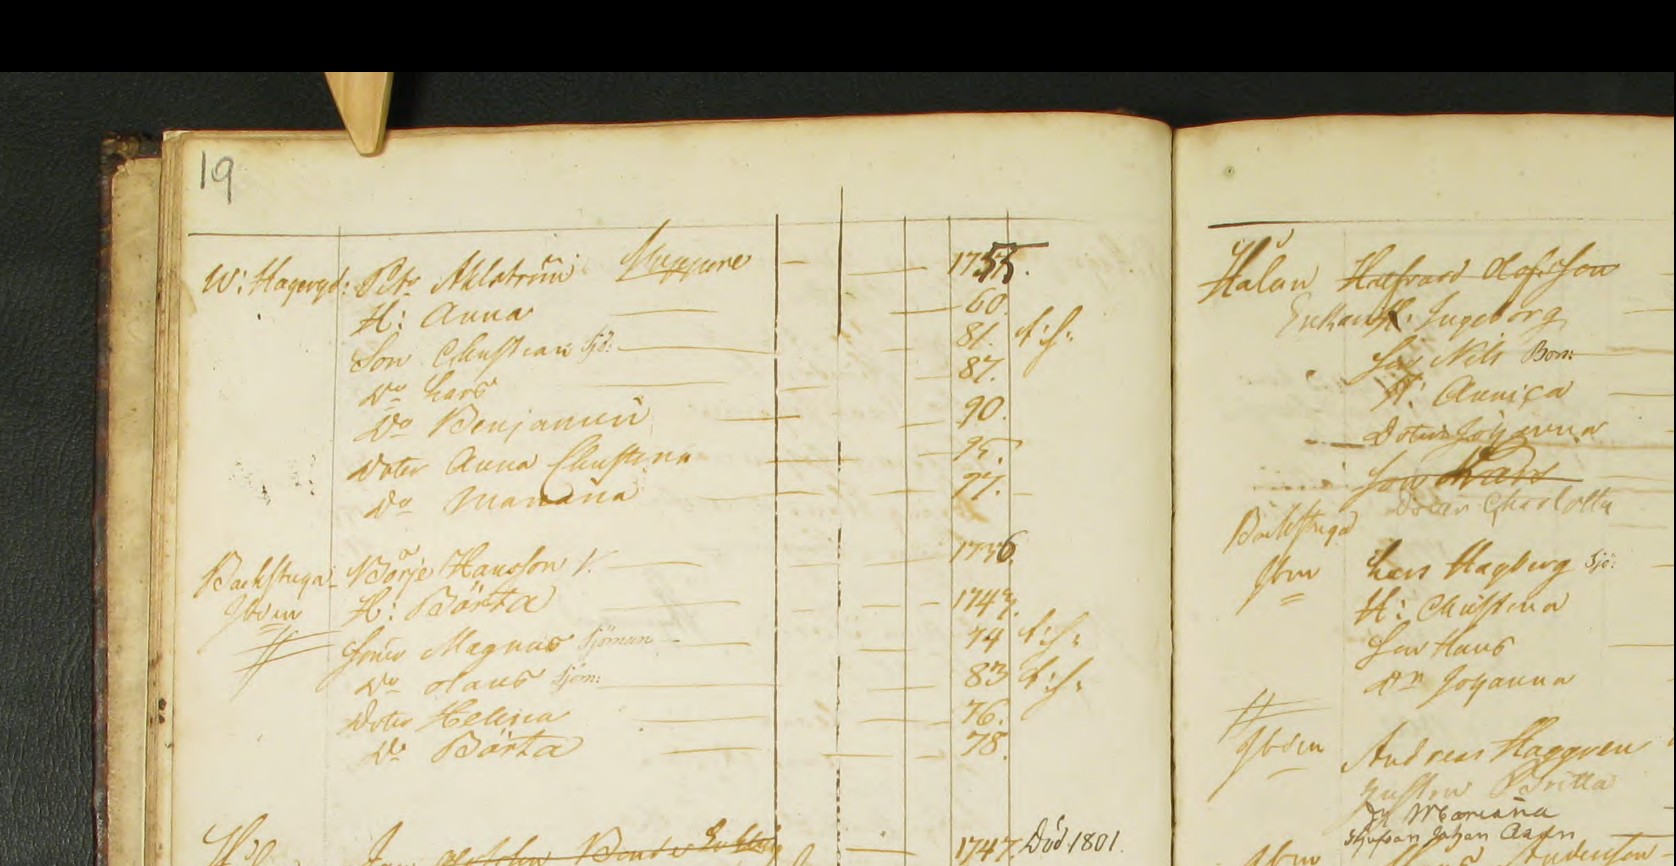 19
W: Hageryd: Petr Ahlström 1755.
H: Anna 60.
Son Christian Sjö: 81.
Do Lars 87.
Do Benjamin 90.
Doter Anna Christina 95.
Do Mariana 97.
Backstuga Börje Hansson 1736
Ibdem H: Börta 1747.
Söner Magnus Sjöman 74
Do Hans Sjöm: 83
Doter Helena 76.
Do Börta 78.
1747. Död 1801.
Halan Hallvard Olofsson
Enkan H. Ingeborg
Son Nils
H: Annica
Doter Johanna
Son Lars
Doter Charlotta
Backstuga
Ibm Lars Hagberg Sjö:
H: Christina
Son Hans
Dr Johanna
Ibdem Andreas Haggren
Hustru Britta
Dr Mariana
Johan